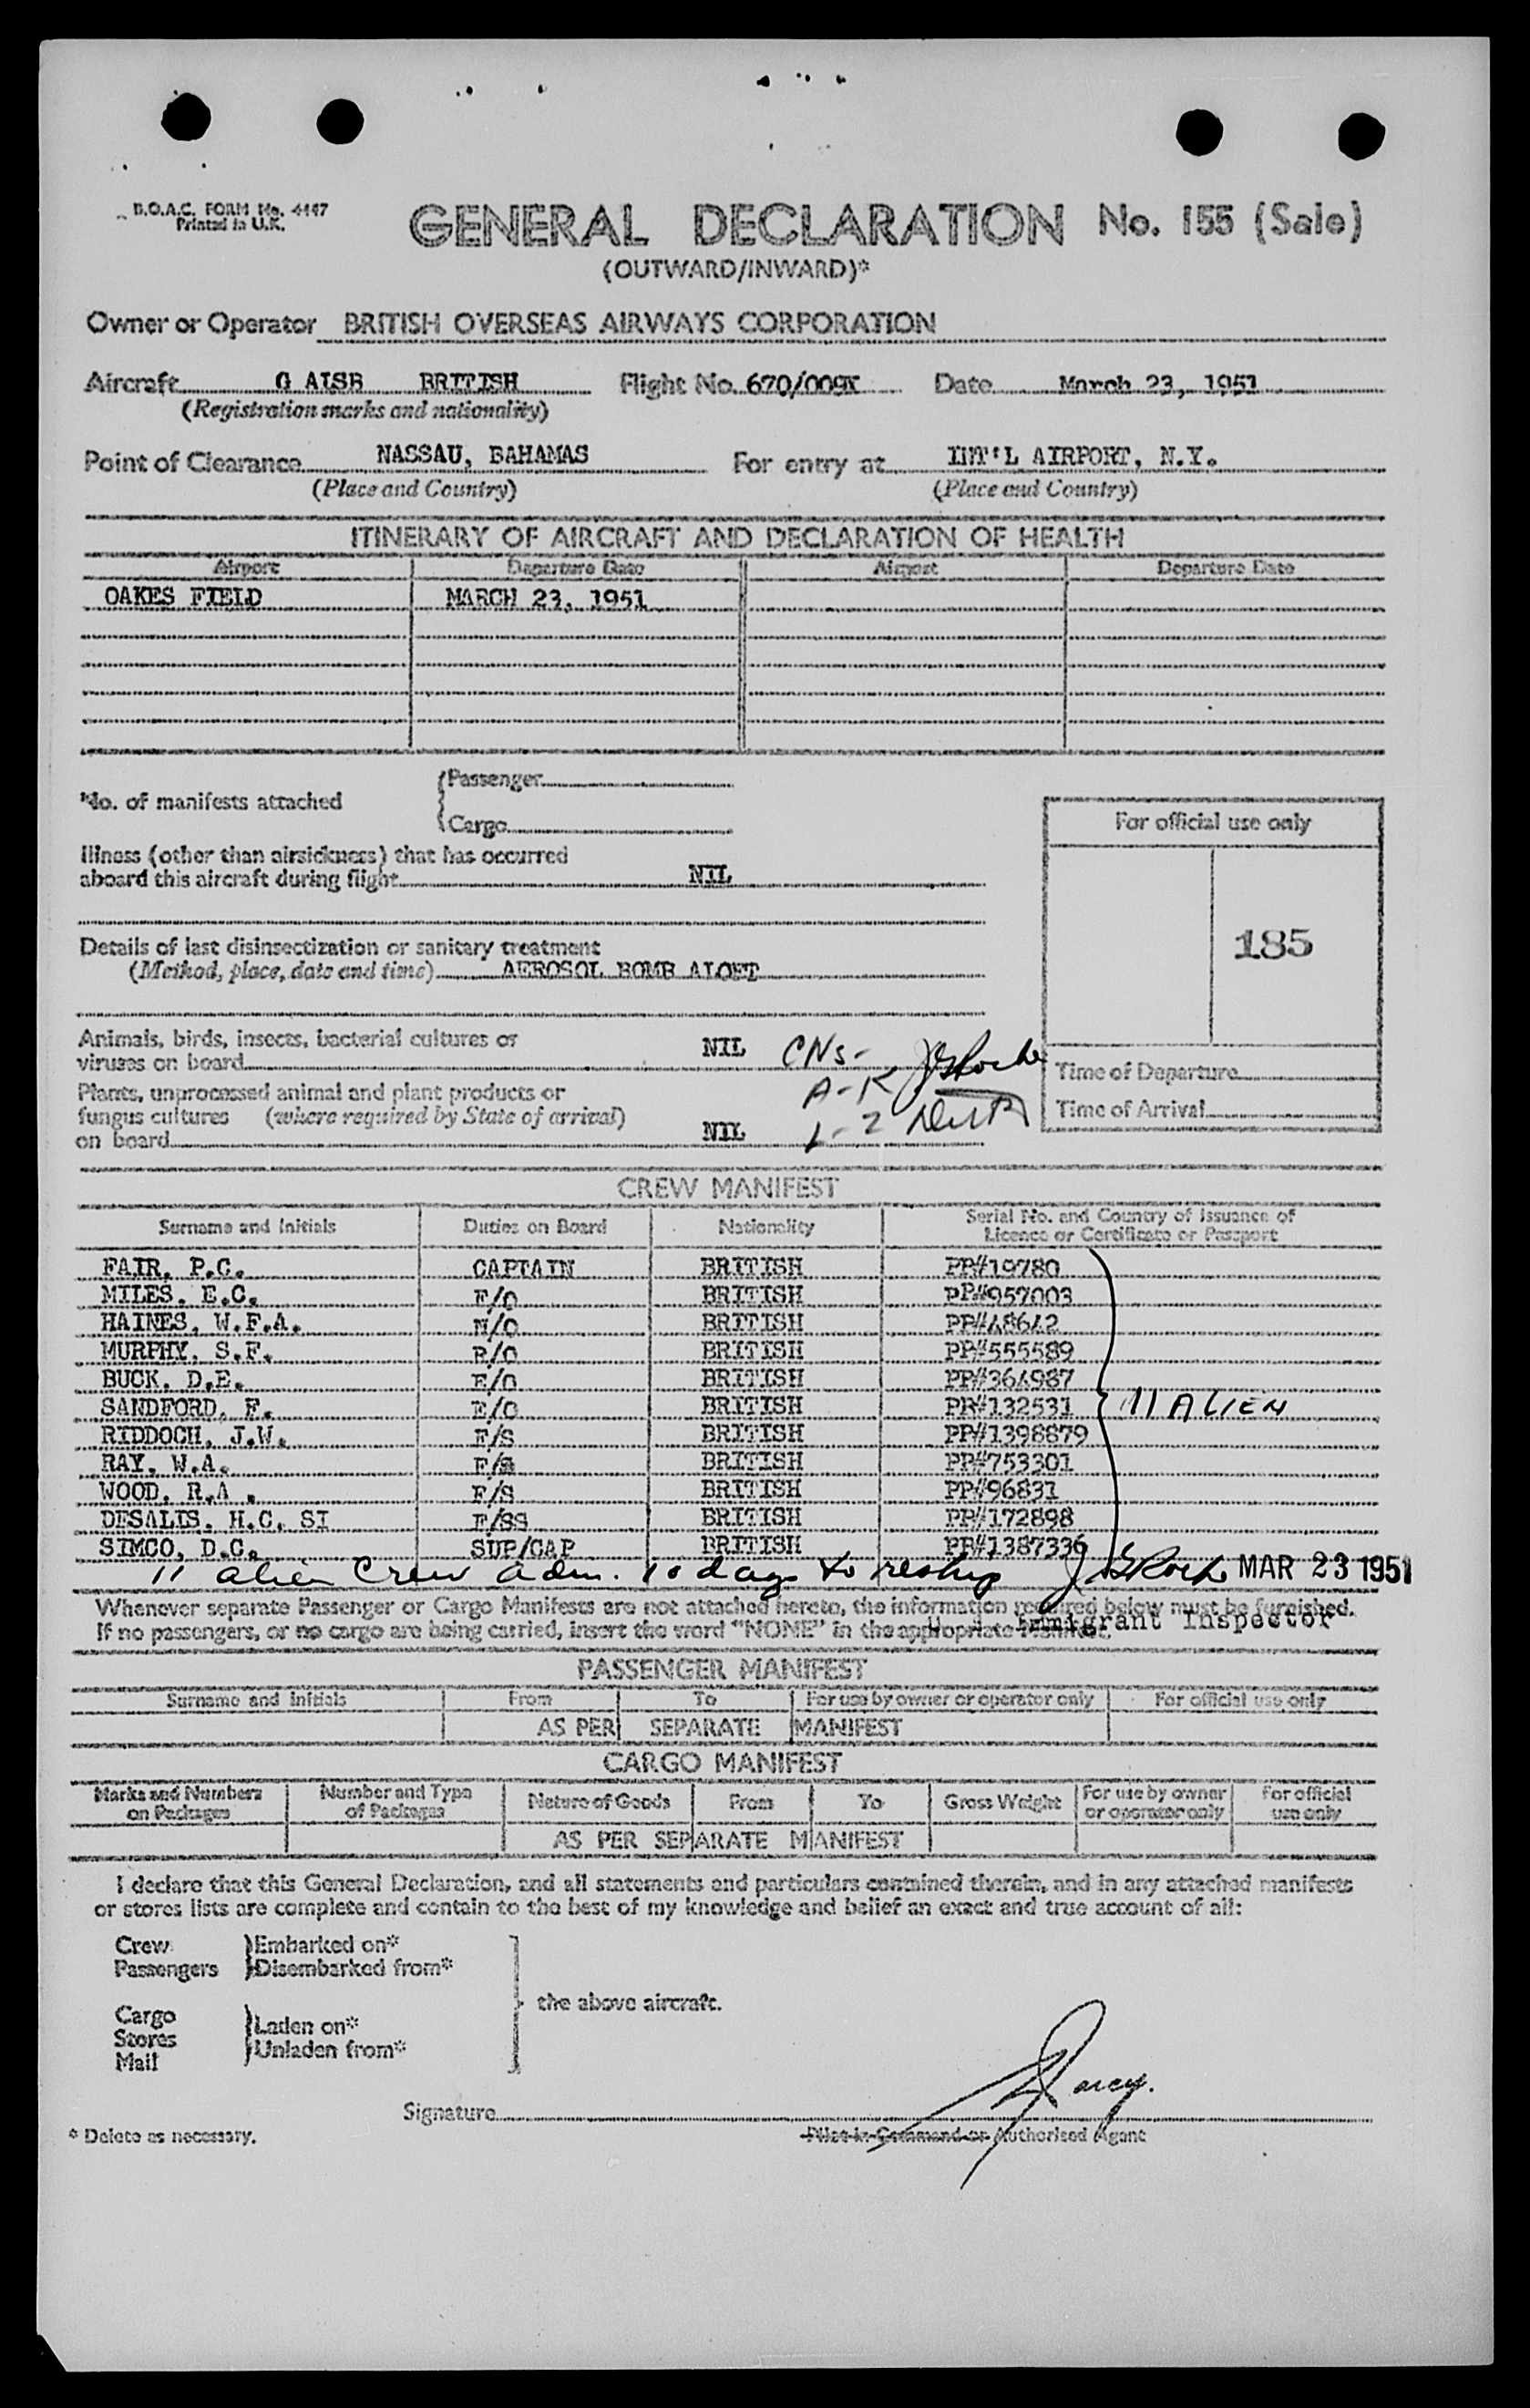 B.O.A.C. FORM No. 4447
Printed in U.K.
GENERAL DECLARATION No. 155 (Sale)
(OUTWARD/INWARD)*
Owner or Operator BRITISH OVERSEAS AIRWAYS CORPORATION
Aircraft BRITISH Flight No. 670/009X Date March 23, 1951
(Registration marks and nationality)
Point of Clearance NASSAU, BAHAMAS For entry at INT'L AIRPORT, N.Y.
(Place and Country) (Place and Country)
ITINERARY OF AIRCRAFT AND DECLARATION OF HEALTH
Airport Departure Date Airport Departure Date
OAKES FIELD MARCH 23, 1951
*No. of manifests attached
Passenger
Cargo
Illness (other than airsickness) that has occurred
aboard this aircraft during flight NIL
For official use only
185
Details of last disinsectization or sanitary treatment
(Method, place, date and time) AEROSOL BOMB ALOFT
Animals, birds, insects, bacterial cultures or
viruses on board NIL CNs-
Plants, unprocessed animal and plant products or A-K
fungus cultures (where required by State of arrival)
on board NIL
Time of Departure
Time of Arrival
CREW MANIFEST
Surname and Initials Duties on Board Nationality Serial No. and Country of Issuance of
Licence or Certificate or Passport
FAIR, P.C. CAPTAIN BRITISH PP#19780
MILES, E.C. F/O BRITISH PP#957003
HAINES, W.F.A. N/O BRITISH PP#48642
MURPHY, S.F. R/O BRITISH PP#555589
BUCK, D.E. E/O BRITISH PP#364987
SANDFORD, F. E/O BRITISH PP#132531 11 ALIEN
RIDDOCH, J.W. F/S BRITISH PP#1398879
RAY, W.A. F/S BRITISH PP#753301
WOOD, R.A. F/S BRITISH PP#96831
DESALIS, H.C. ST F/SS BRITISH PP#172898
SIMCO, D.C. SUP/CAP BRITISH PP#1387336
11 alien Crew adm. 10 days to reship MAR 23 1951
Whenever separate Passenger or Cargo Manifests are not attached hereto, the information required below must be furnished.
If no passengers, or no cargo are being carried, insert the word "NONE" in the appropriate manifest.
Immigrant Inspector
PASSENGER MANIFEST
Surname and Initials From To For use by owner or operator only For official use only
AS PER SEPARATE MANIFEST
CARGO MANIFEST
Marks and Numbers on Packages Number and Type of Packages Nature of Goods From To Gross Weight For use by owner or operator only For official use only
AS PER SEPARATE MANIFEST
I declare that this General Declaration, and all statements and particulars contained therein, and in any attached manifests
or stores lists are complete and contain to the best of my knowledge and belief an exact and true account of all:
Crew Embarked on*
Passengers Disembarked from*
the above aircraft.
Cargo
Stores Laden on*
Mail Unladen from*
Signature
* Delete as necessary. Pilot in Command or Authorised Agent